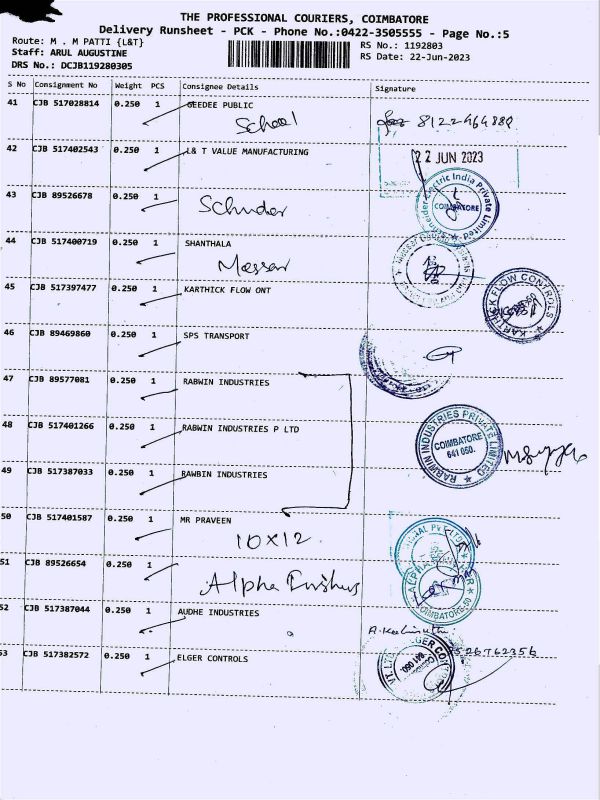 THE PROFESSIONAL COURIERS, COIMBATORE
Delivery Runsheet - PCK - Phone No.:0422-3505555 - Page No.:5
Route: M . M PATTI {L&T}
Staff: ARUL AUGUSTINE
DRS No.: DCJB119280305
RS No.: 1192803
RS Date: 22-Jun-2023
S No Consignment No Weight PCS Consignee Details Signature
41 CJB 517028814 0.250 1 GEEDEE PUBLIC
School
42 CJB 517402543 0.250 1 L& T VALUE MANUFACTURING
22 JUN 2023
43 CJB 89526678 0.250 1
Electric India Private Limited
COIMBATORE
44 CJB 517400719 0.250 1 SHANTHALA
45 CJB 517397477 0.250 1 KARTHICK FLOW ONT
KARTHICK FLOW CONTROLS
46 CJB 89469860 0.250 1 SPS TRANSPORT
47 CJB 89577081 0.250 1 RABWIN INDUSTRIES
48 CJB 517401266 0.250 1 RABWIN INDUSTRIES P LTD
RABWIN INDUSTRIES PRIVATE LIMITED
COIMBATORE
641 050.
49 CJB 517387033 0.250 1 RAWBIN INDUSTRIES
50 CJB 517401587 0.250 1 MR PRAVEEN
10X12
51 CJB 89526654 0.250 1
Alpha
52 CJB 517387044 0.250 1 AUDHE INDUSTRIES
53 CJB 517382572 0.250 1 ELGER CONTROLS